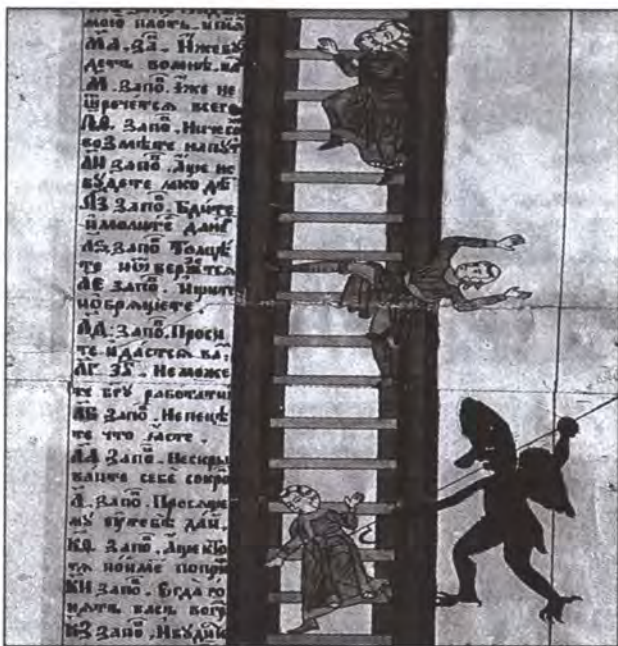 мою плоть. и пїѧ
М҃А. За. Иже бꙋ
детъ во мнѣ. и а
М҃. Запо. Иже не
ѿрочетсѧ всего
Л҃Ѳ. Запо. Ничесо
возмѣте на пꙋт
Л҃И Запо. Аще не
бꙋдете ꙗко дѣ
Л҃З Запо. Бдите
и молите
Л҃Ѕ. Запо Толцѣ
те и ѿверзетсѧ
Л҃Е Запо. Ищите
и обрѧщете.
Л҃Д. Запо. Проси
те и дастсѧ ва:
Л҃Г. За. Не може
те бг҃ꙋ работати
Л҃В Запо. Не пецѣ
те что ꙗсте.
Л҃А Запо. Не скры
ваите себѣ сокро
Л҃. Запо. Просѧще
мꙋ ꙋ тебѣ даи.
К҃Ѳ. Запо. Аще кто
тѧ поиме попри
К҃И Запо. Егда го
нѧтъ васъ
К҃З Запо. И бꙋди